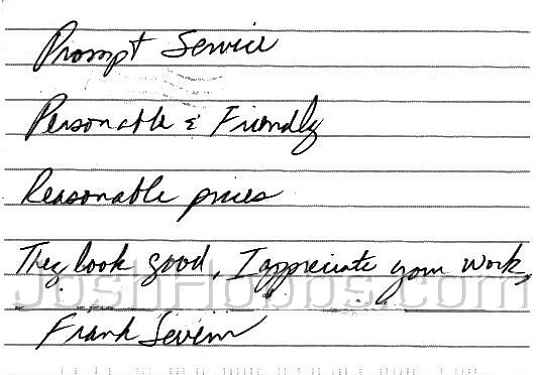 Prompt Service
Personable & Friendly
Reasonable prices
They look good, I appreciate your work,
JoshHobbs.com
Frank Severn